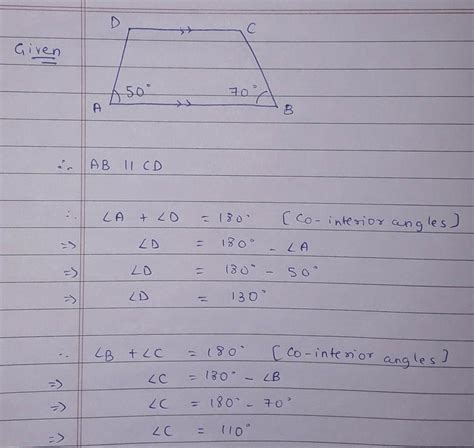 D C
Given
50° 70°
A B
∴ AB || CD
∴ ∠A + ∠D = 180° [Co-interior angles]
=> ∠D = 180° - ∠A
=> ∠D = 180° - 50°
=> ∠D = 130°
∴ ∠B + ∠C = 180° [Co-interior angles]
=> ∠C = 180° - ∠B
=> ∠C = 180° - 70°
=> ∠C = 110°